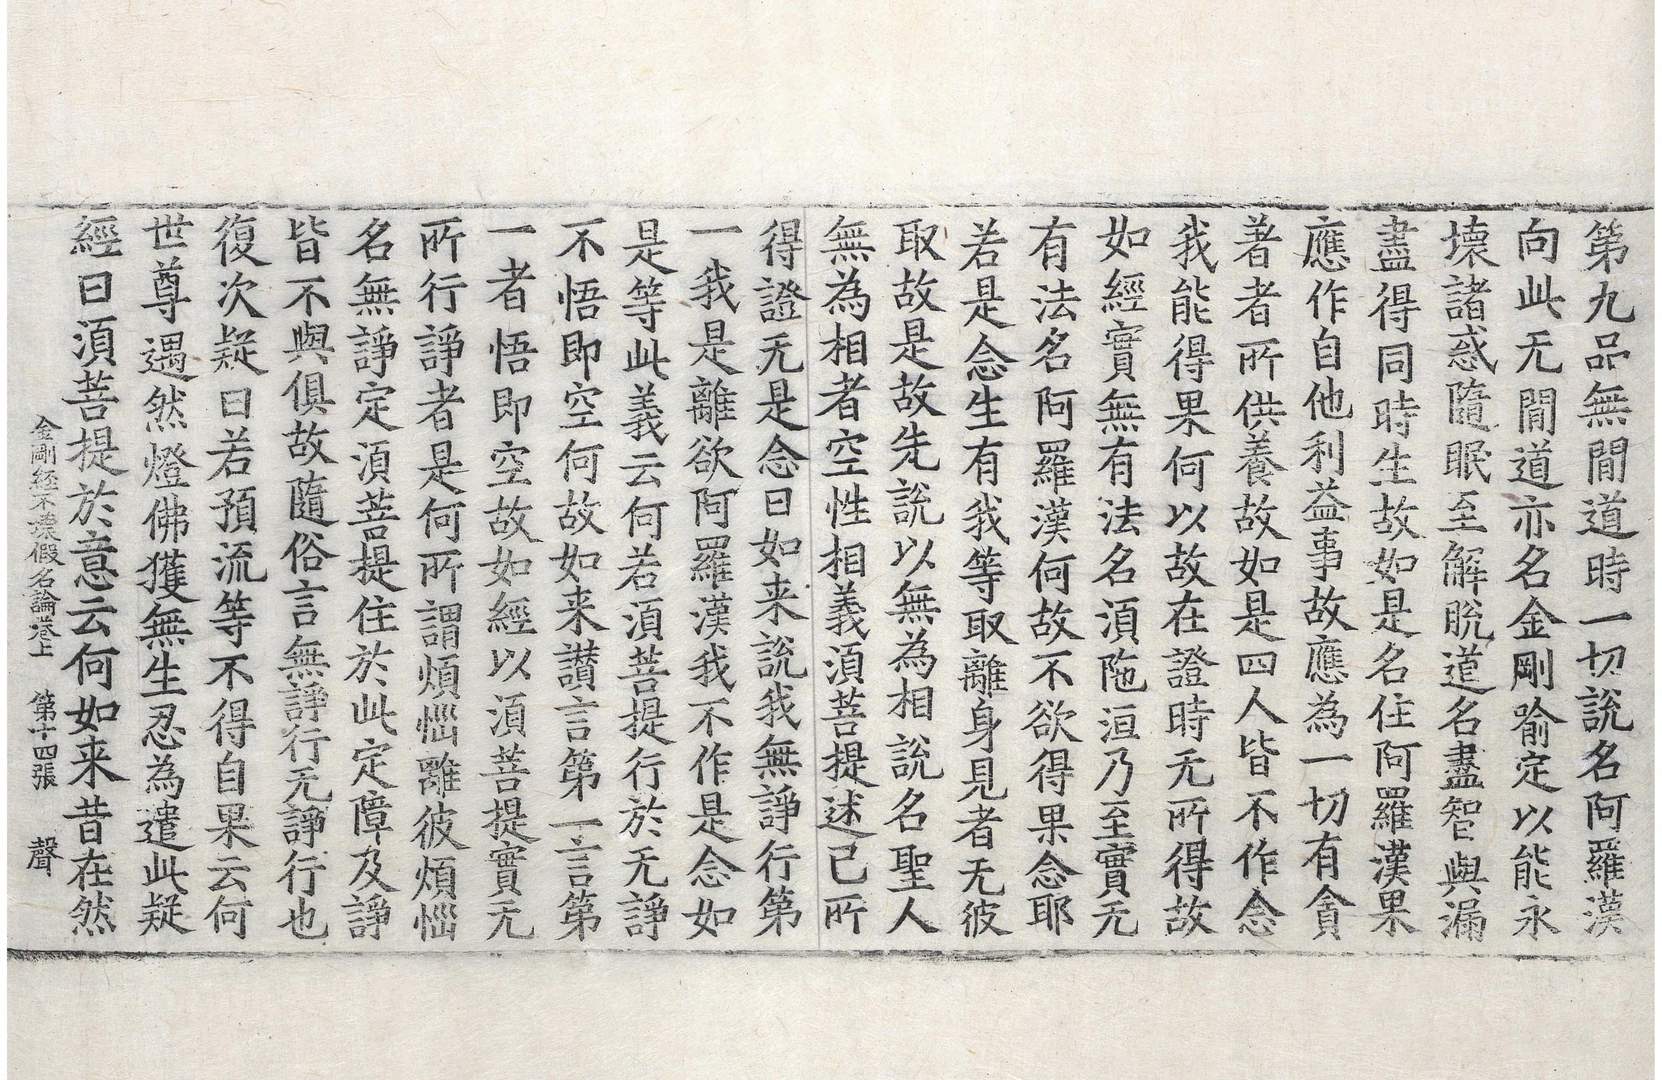 第九品無閒道時一切說名阿羅漢
向此无閒道亦名金剛喻定以能永
壞諸惑隨眠至解脫道名盡智與漏
盡得同時生故如是名住阿羅漢果
應作自他利益事故應為一切有貪
著者所供養故如是四人皆不作念
我能得果何以故在證時无所得故
如經實無有法名須陁洹乃至實无
有法名阿羅漢何故不欲得果念耶
若是念生有我等取離身見者无彼
取故是故先說以無為相說名聖人
無為相者空性相義須菩提述已所
得證无是念曰如来說我無諍行第
一我是離欲阿羅漢我不作是念如
是等此義云何若須菩提行於无諍
不悟即空何故如来讃言第一言第
一者悟即空故如經以須菩提實无
所行諍者是何所謂煩惱離彼煩惱
名無諍定須菩提住於此定障及諍
皆不與俱故隨俗言無諍行无諍行也
復次疑曰若預流等不得自果云何
世尊遇然燈佛獲無生忍為遣此疑
經曰須菩提於意云何如来昔在然
金剛経不壞假名論卷上　第十四張　聲